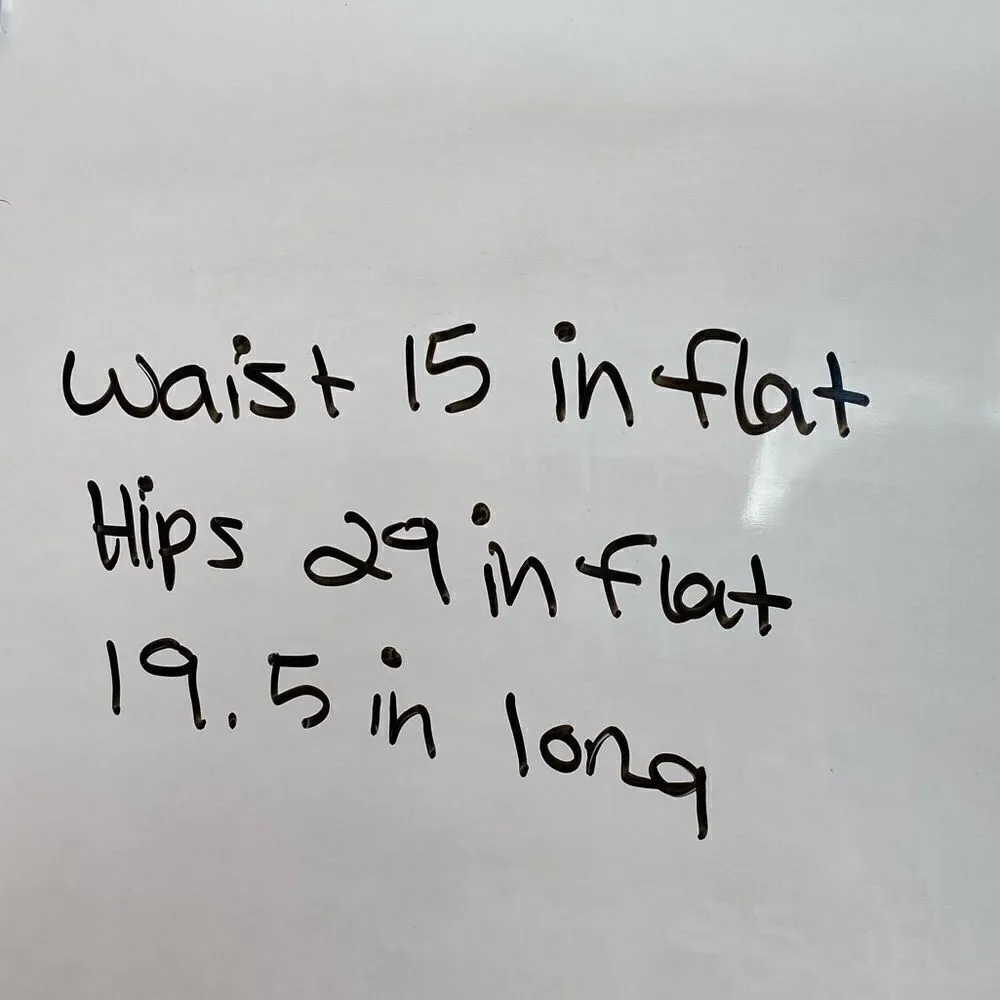 Waist 15 in flat
Hips 29 in flat
19.5 in long